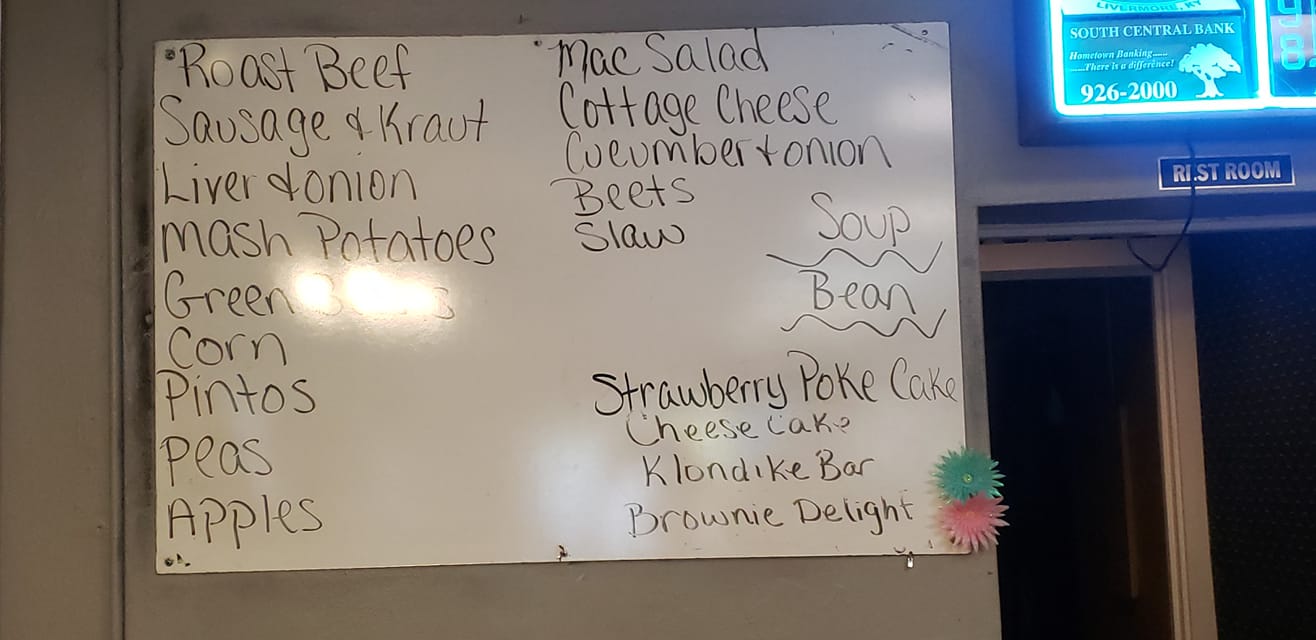 Roast Beef
Sausage & Kraut
Liver & onion
Mash Potatoes
Green
Corn
Pintos
Peas
Apples
Mac Salad
Cottage Cheese
Cucumber & onion
Beets
Slaw
Soup
Bean
Strawberry Poke Cake
Cheese Cake
Klondike Bar
Brownie Delight
LIVERMORE, KY
SOUTH CENTRAL BANK
Hometown Banking......
......There is a difference!
926-2000
REST ROOM